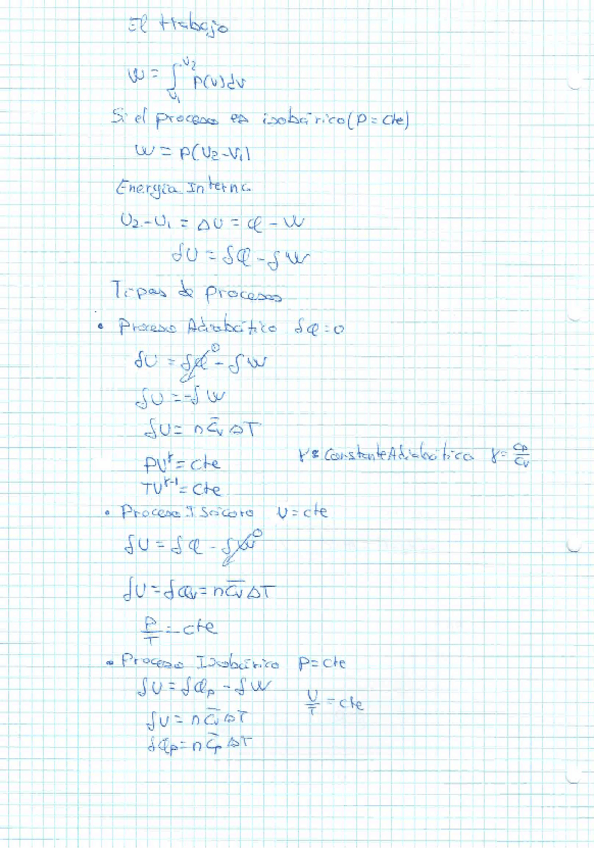 El trabajo
W = ∫_{V1}^{V2} P(V)dV
Si el proceso es isobárico (P = Cte)
W = P(V2-V1)
Energía Interna
U2-U1 = ΔU = Q - W
δU = δQ - δW
Tipos de procesos
• Proceso Adiabático δQ = 0
δU = δQ⁰ - δW
δU = -δW
δU = n C̄v ΔT
PV^γ = Cte γ = Constante Adiabática γ = Cp/Cv
TV^{γ-1} = Cte
• Proceso Isócoro V = cte
δU = δQ - δW⁰
δU = δQv = n C̄v ΔT
P/T = cte
• Proceso Isobárico P = cte
δU = δQp - δW V/T = cte
δU = n C̄v ΔT
δQp = n C̄p ΔT